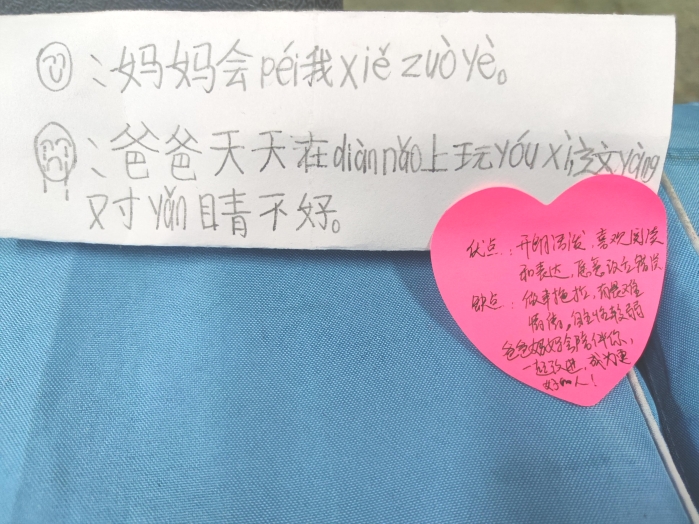 ：妈妈会péi我xiě zuò yè。
：爸爸天天在diàn nǎo上玩yóu xì，这yàng
对yǎn睛不好。
优点：开朗活泼、喜欢阅读
和表达，愿意改正错误
缺点：做事拖拉，有畏难
情绪，自主性较弱
爸爸妈妈会陪伴你，
一起改进，成为更
好的人！